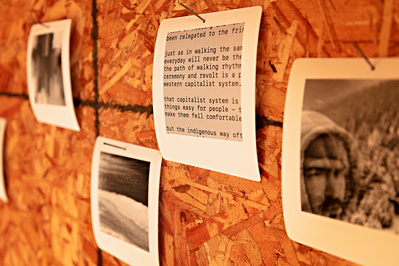 been relegated to the fri
Just as in walking the sam
everyday will never be the
the path of walking rhythm
ceremony and revolt is a p
western capitalist system.
that capitalist system is
things easy for people – t
make them fell comfortable
but the indigenous way oft